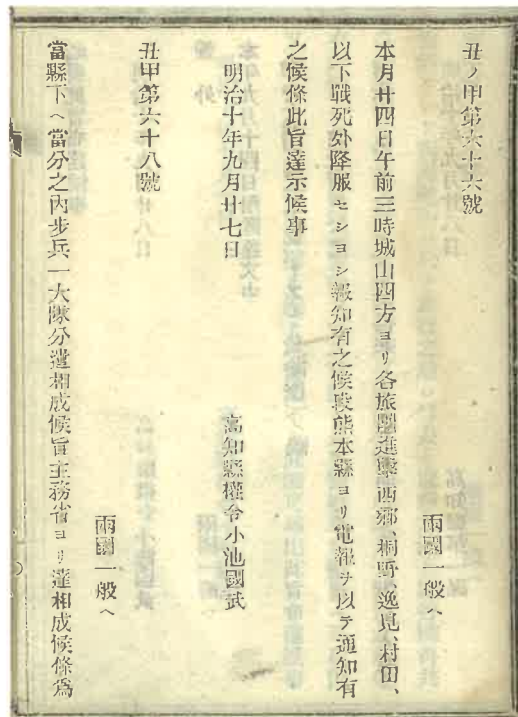 丑ノ甲第六十六號
兩國一般ヘ
本月廿四日午前三時城山四方ヨリ各旅團進擊西鄕、桐野、逸見、村田、
以下戰死外降服セシヨシ報知有之候段熊本縣ヨリ電報ヲ以テ通知有
之候條此旨達示候事
明治十年九月廿七日
高知縣權令小池國武
丑甲第六十八號
兩國一般ヘ
當縣下ヘ當分之內步兵一大隊分遣相成候旨主務省ヨリ達相成候條爲